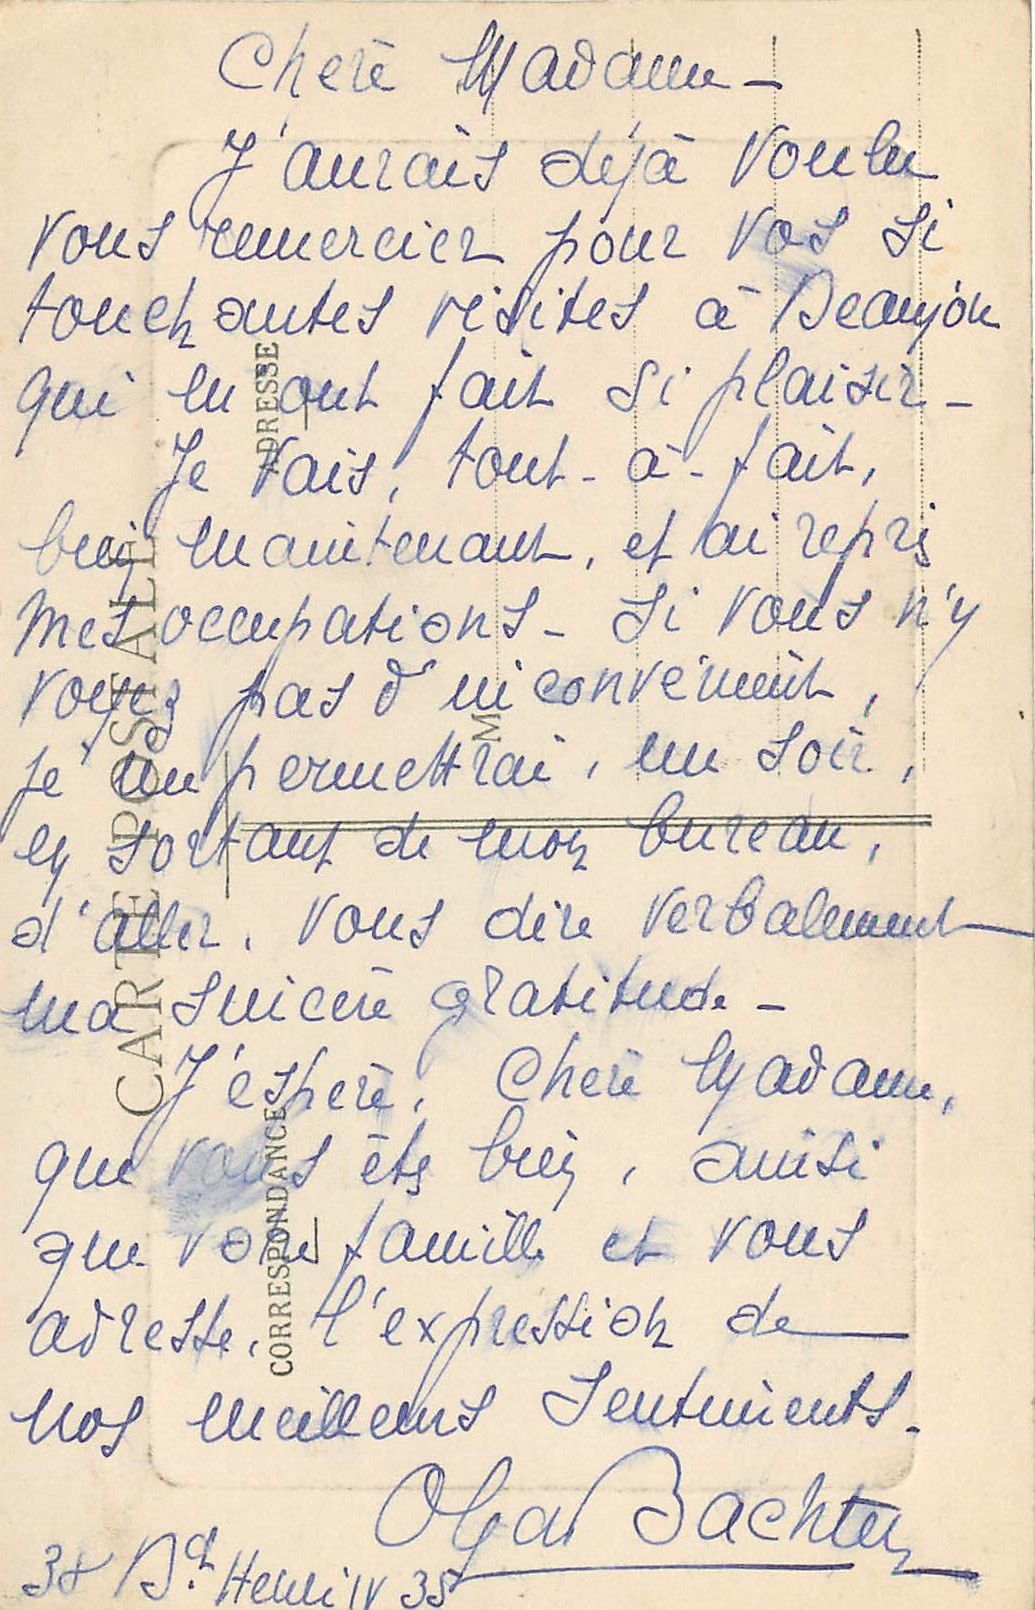 Chère Madame -
J'aurais déjà voulu
vous remercier pour vos si
touchantes visites à Beaujon
qui m'ont fait si plaisir -
Je vais, tout-à-fait,
bien maintenant, et ai repris
mes occupations - Si vous n'y
voyez pas d'inconvénient,
je me permettrai, un soir,
en sortant de mon bureau,
d'aller, vous dire verbalement
ma sincère gratitude -
J'espère, Chère Madame,
que vous êtes bien, ainsi
que votre famille et vous
adresse, l'expression de
mes meilleurs sentiments.
Olga
Bd Henri IV 35
CARTE POSTALE
CORRESPONDANCE
ADRESSE
M